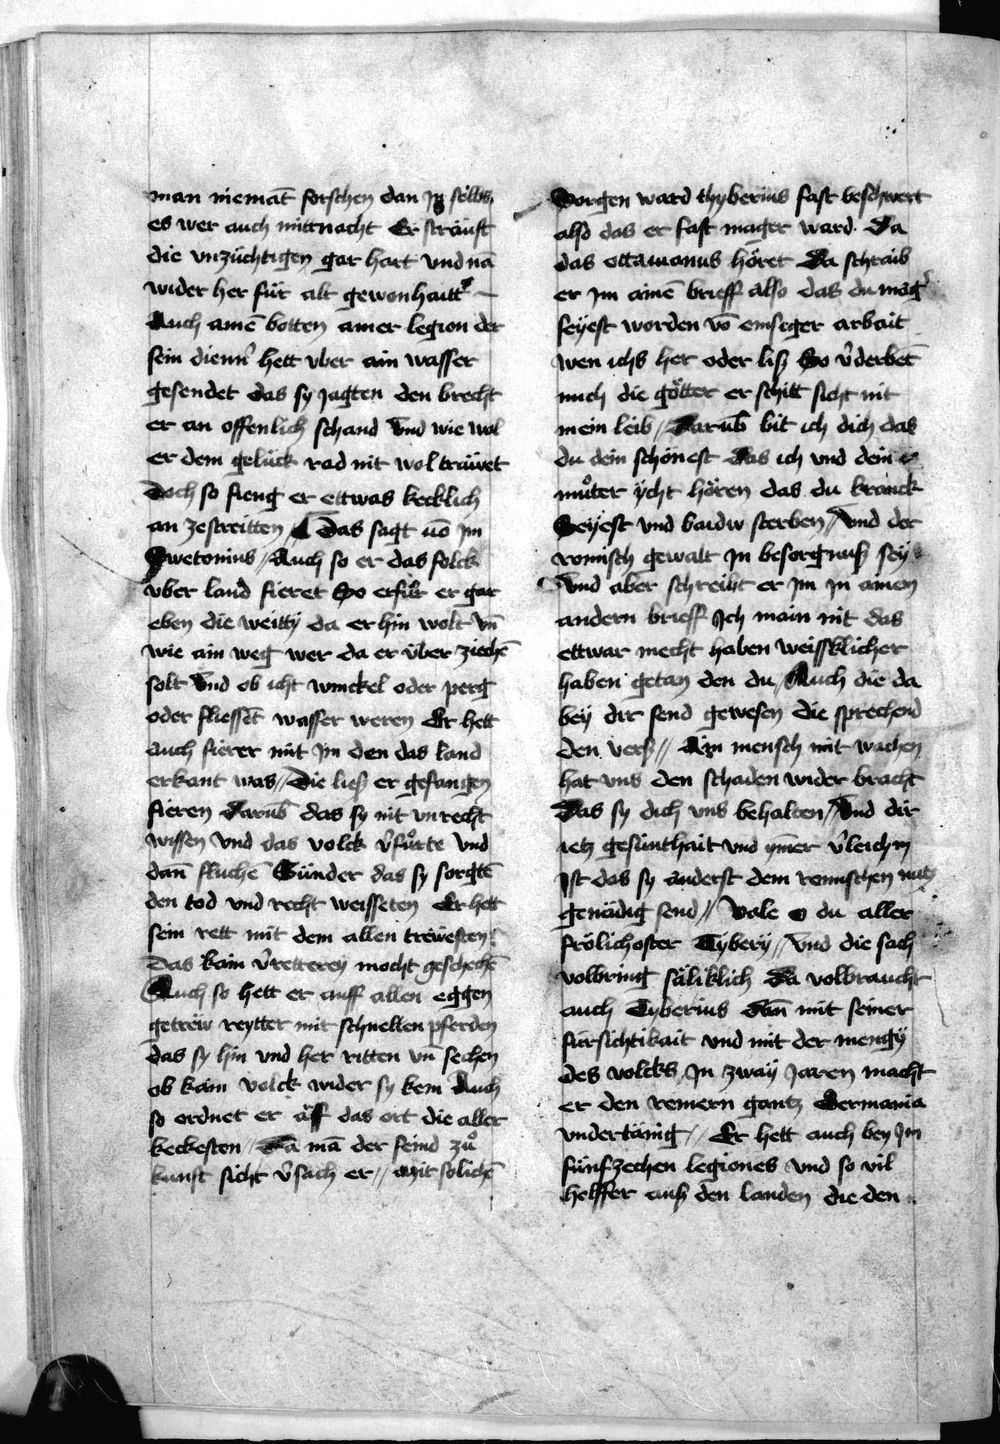 man niemāt forschen dan In selbs
es wer auch mittnacht Er sträufft
die vnzüchtigen gar hart vnd nā
wider her für alt gewonhaitt
Auch ainē botten ainer legion der
sein dienn̄ hett vber ain wasser
gesendet das sy Jagten den brecht
er an offenlich schand Vnd wie wol
er dem gelück rad nit wol träwet
Doch so fieng er ettwas kecklich
an zestreitten // Das sagt vō Im
Swetonius // Auch so er das folck
vber land fieret So erfůr er gar
eben die weitty da er hin wolt vn̄
wie ain weg wer da er über ziechē
solt Vnd ob icht winckel oder perg
oder fliessēt wasser weren Er hett
auch fierer mit Im den das land
erkant was // Die ließ er gefangen
fieren Darūb das sy nit vnrecht
wissen Vnd das volck v̄fůrte Vnd
dan̄ fluchē Sünder das sy sorgtē
den tod vnd recht weisseten Er hett
sein rett mit dem allen trewesten
Das kain v̄retterey mocht geschechē
Auch so hett er auff allen eggen
getrew reytter mit schnellen pferden
das sy hin vnd her ritten vn̄ sechen
ob kain volck wider sy kem Auch
so ordnet er aüf das ort die aller
keckesten // Da mā der feind zů
kunft sicht v̄sach er // Mit solichē
Sorgen ward thyberius fast beschwert
also das er fast mager ward. Da
das ottauianus höret Da schraib
er Im ainē brieff also das du maḡ
seyest worden vō emseger arbait
wen ichs her oder liß So v̄derbēt
mich die götter er schitt sicht nit
mein leib / Darūb bit ich dich das
du dein schönest Das ich vnd dein
můter ÿcht hören das du kranck
Seyest vnd baidw sterben // Vnd der
romisch gewalt In besorgnuß sey
Vnd aber schreibt er Im In ainem
andern brieff Ich main nit das
ettwar mecht haben weissklicher
haben getan den du / Auch die da
bey dir send gewesen die sprechend
den verß // Ain mensch mit wachen
hat vns den schaden wider bracht
Das sy dich vns behalten // Vnd dir
ietz gesunthait vnd ym̄er v̄leichn
Ist das sy anderst dem romischen
genädig send // Vale o du aller
frölichoster Tybery // Vnd die sach
volbring säliklich Da volbraucht
auch Tyberius dan̄ mit seiner
fürsichtikait vnd mit der mengÿ
des volcks In zway Jaren macht
er den remern gantz Germania
vndertänig // Er hett auch bey Im
fünfzechen legiones vnd so vil
helffer auß den landen die den